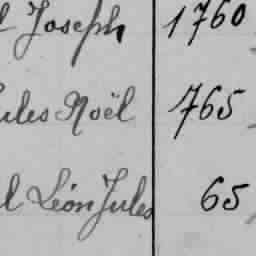 l Joseph 1760
ules Noël 765
l Léon Jules 65